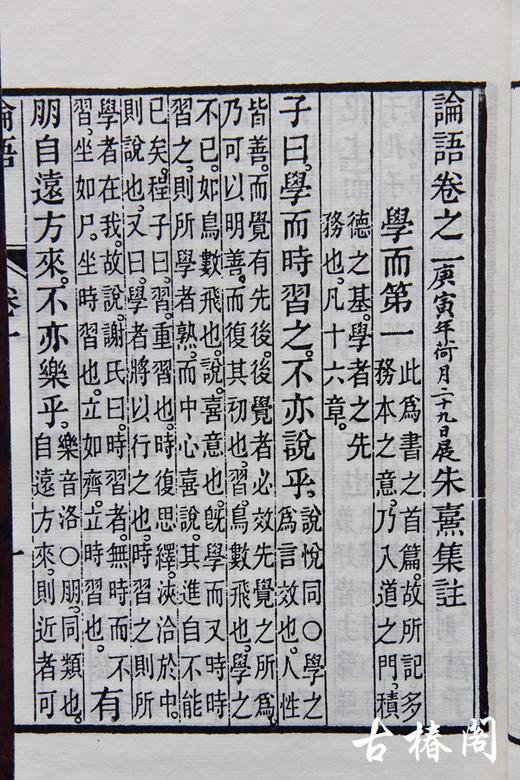 論語卷之一庚寅年荷月二十九日展朱熹集註
學而第一
此爲書之首篇。故所記多
務本之意。乃入道之門。積
德之基。學者之先
務也。凡十六章。
子曰。學而時習之。不亦說乎。
說悅同○學之
爲言效也。人性
皆善。而覺有先後。後覺者必效先覺之所爲。
乃可以明善。而復其初也。習。鳥數飛也。學之
不已。如鳥數飛也。說。喜意也。旣學而又時時
習之。則所學者熟。而中心喜說。其進自不能
已矣。程子曰。習。重習也。時復思繹。浹洽於中。
則說也。又曰。學者將以行之也。時習之則所
學者在我。故說。謝氏曰。時習者。無時而不
習。坐如尸。坐時習也。立如齊。立時習也。
有
朋自遠方來。不亦樂乎。
樂音洛○朋。同類也。
自遠方來。則近者可
論語
卷一
一
古椿閣